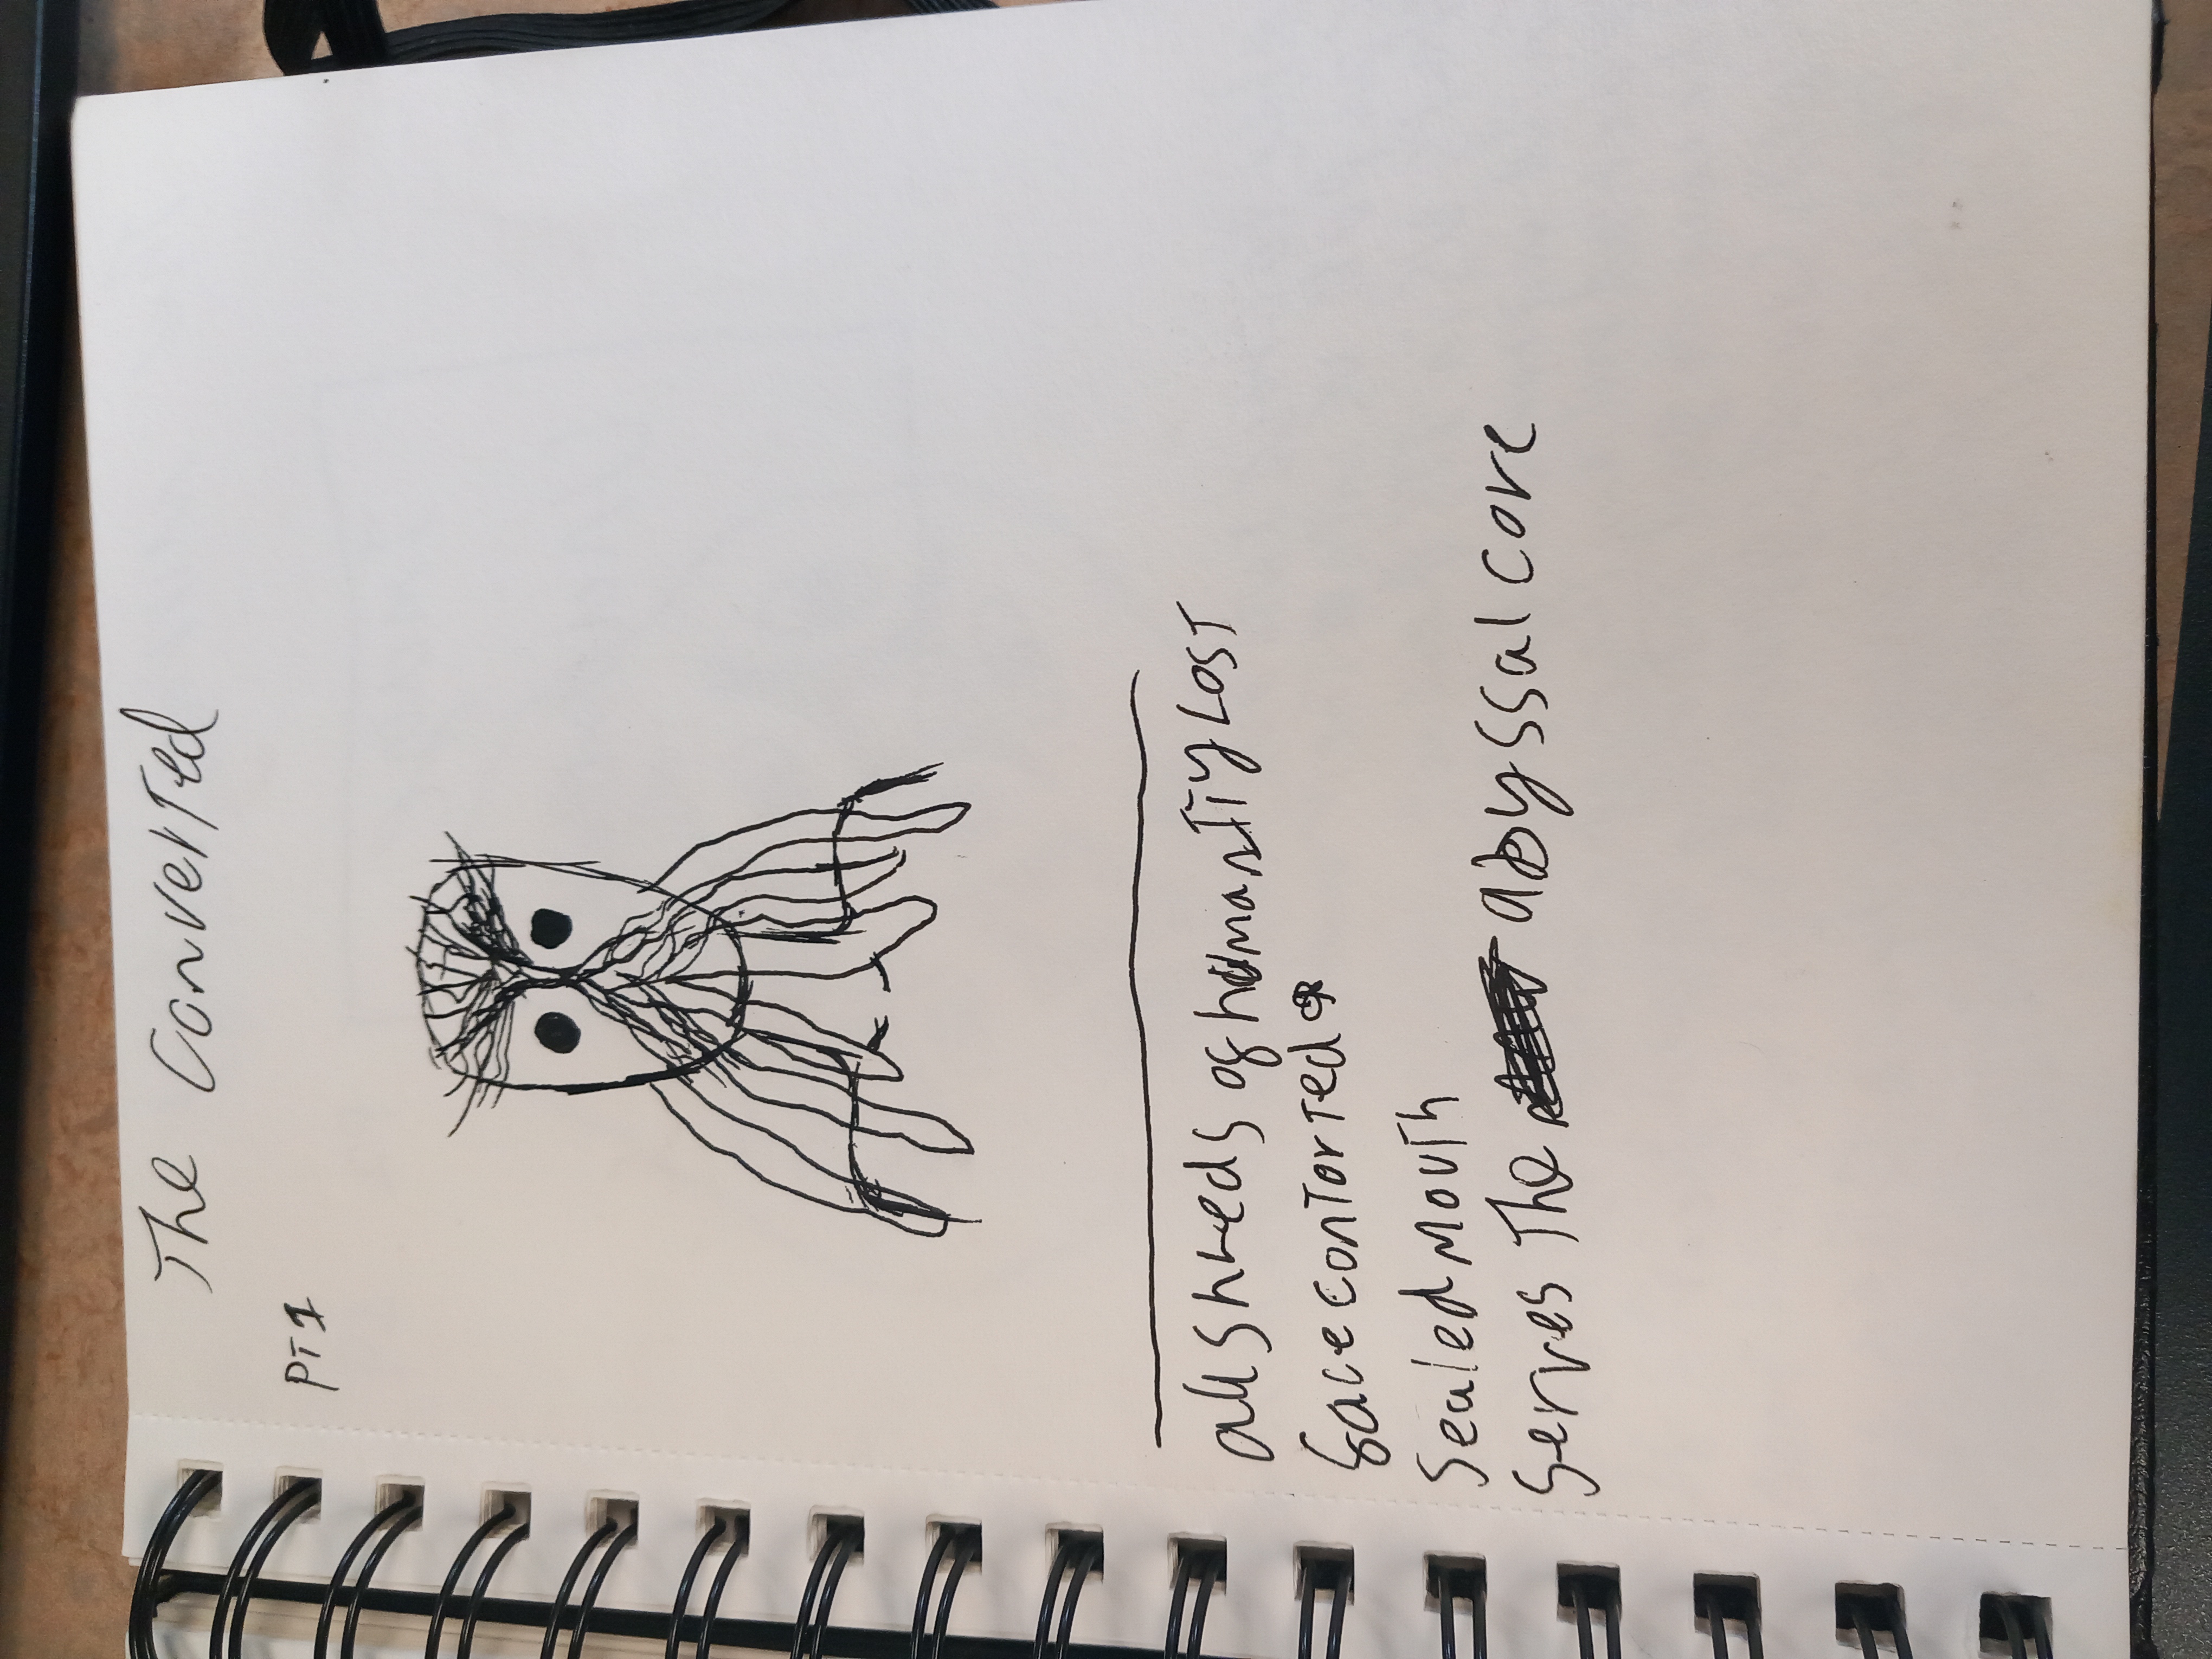 The Converted
PT 1
all shreds of humanity Lost
face contorted
sealed mouth
serves The abyssal core